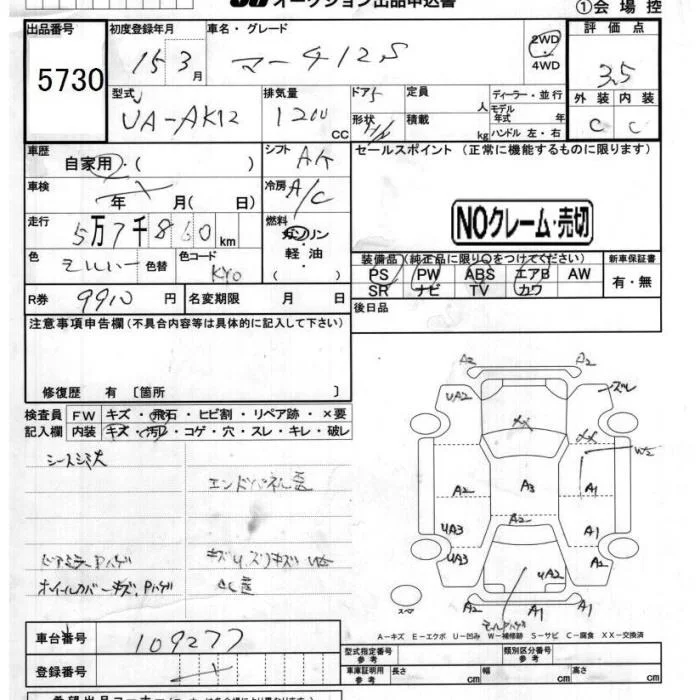 オークション出品申込書
①会場控
出品番号
5730
初度登録年月
15 3月
車名・グレード
マーチ12S
2WD
4WD
評価点
3.5
型式
UA-AK12
排気量
1200 CC
ドア 5
形状 H/B
定員 人
積載 kg
ディーラー・並行
モデル年式 年
ハンドル 左・右
外装 内装
C C
車歴
自家用・( )
シフト AT
セールスポイント (正常に機能するものに限ります)
車検
年 月( 日)
冷房 A/C
NOクレーム・売切
走行
5万7千860km
燃料
ガソリン
・
軽油
( )
色
色替
色コード
KY0
装備品(純正品に限り○をつけてください)
新車保証書
PS PW ABS エアB AW
SR ナビ TV カワ
有・無
R券 9910 円
名変期限 月 日
後日品
注意事項申告欄(不具合内容等は具体的に記入して下さい)
修復歴 有 〔箇所 〕
検査員
記入欄
FW キズ・飛石・ヒビ割・リペア跡・×要
内装 キズ・汚レ・コゲ・穴・スレ・キレ・破レ
A2 A2
UA2
ズレ
XX
XX
W2
A2 A3 A1
A2
UA3 A1
UA3
UA2
A2 A1 A2
スペア
シートシミ大
エンドパネル歪
ドアミラーPハゲ
ホイルカバーキズ、Pハゲ
A-キズ E-エクボ U-凹み W-補修跡 S-サビ C-腐食 XX-交換済
車台番号
109277
登録番号
型式指定番号
参考
類別区分番号
参考
車庫証明用
参考
長さ cm
幅 cm
高さ cm